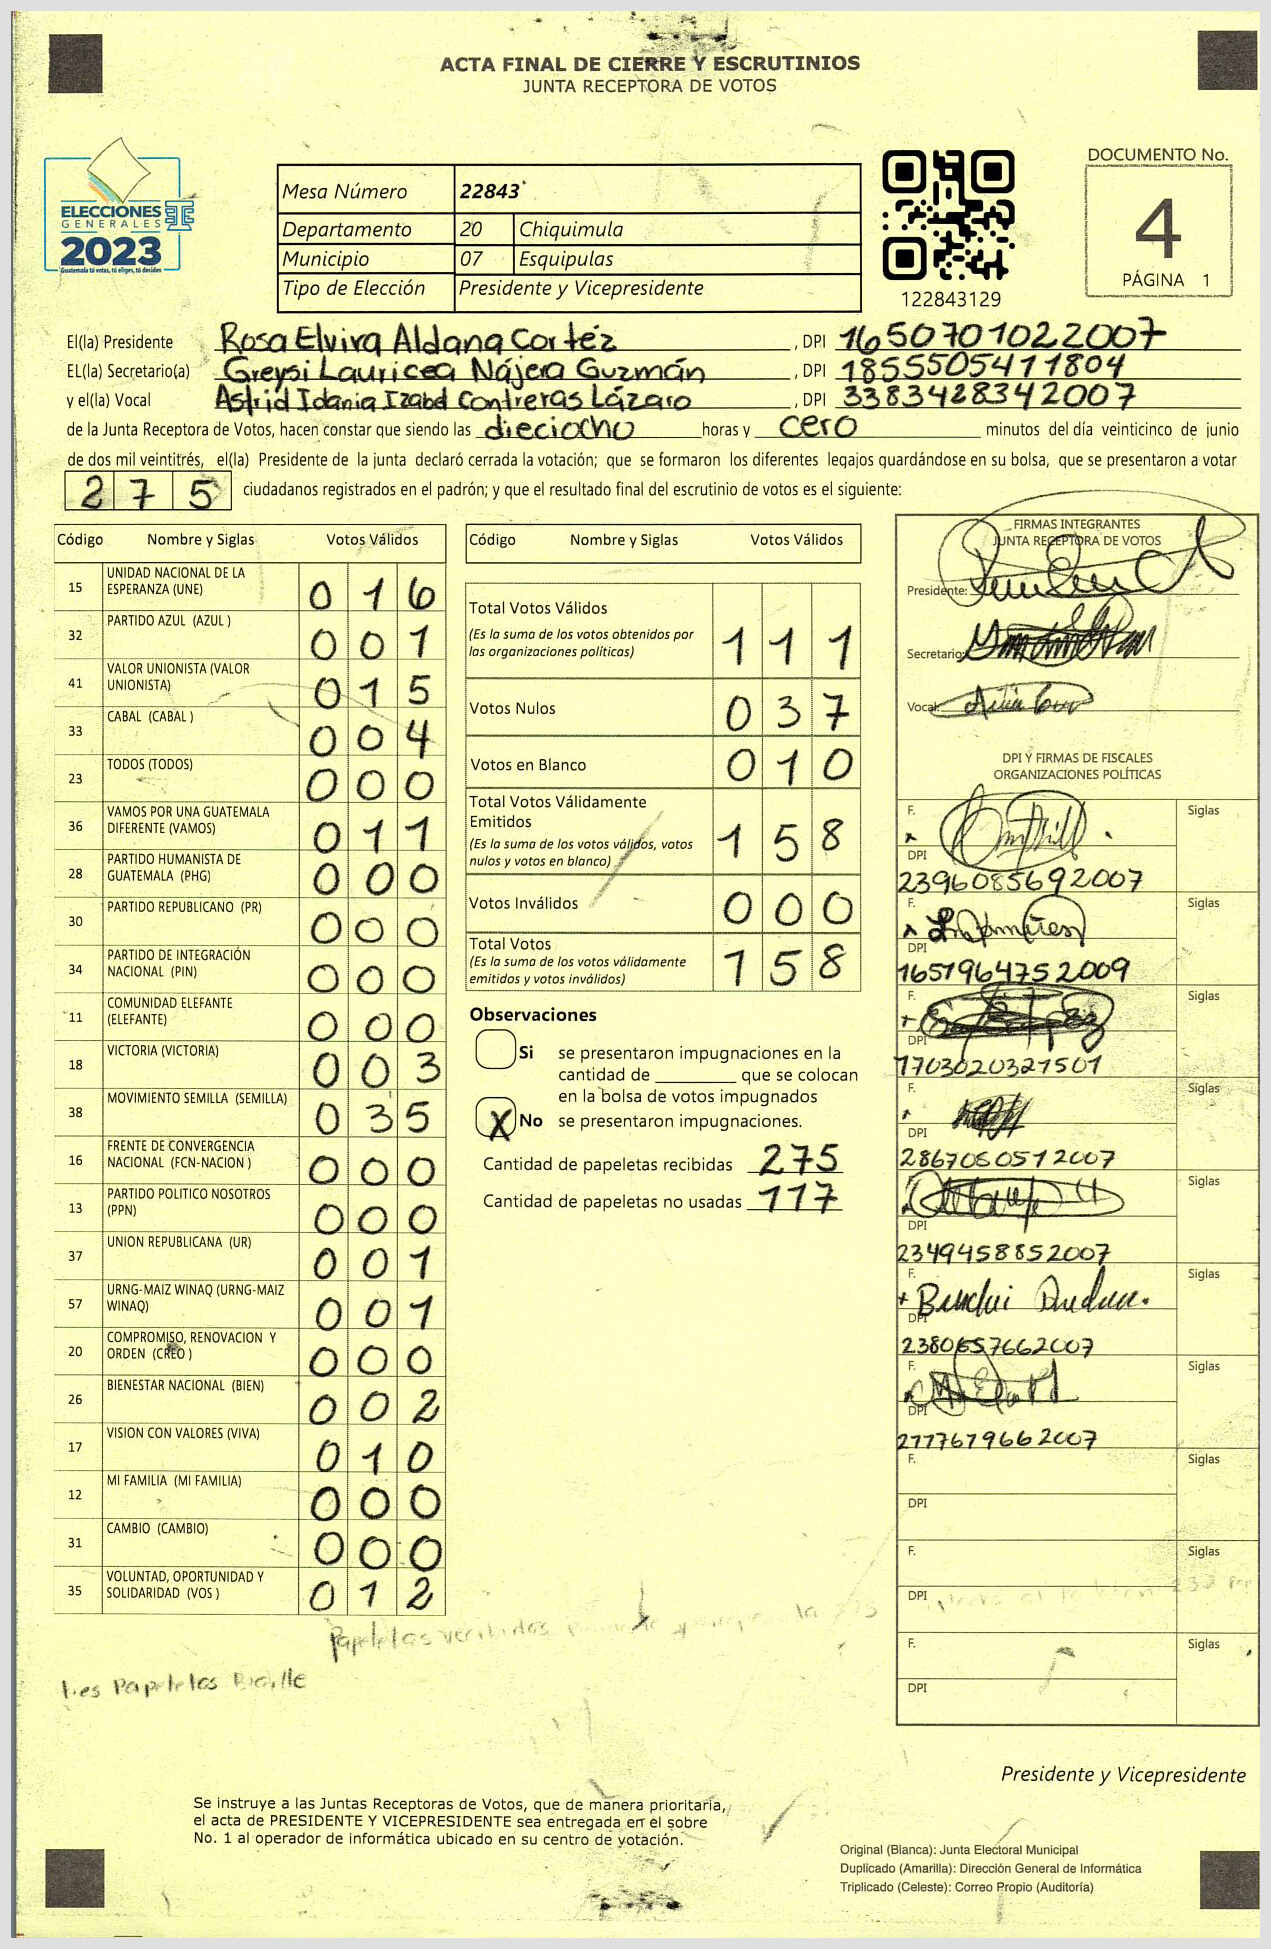 ACTA FINAL DE CIERRE Y ESCRUTINIOS
JUNTA RECEPTORA DE VOTOS
ELECCIONES
GENERALES
2023
Guatemala tú votas, tú eliges, tú decides
Mesa Número 22843
Departamento 20 Chiquimula
Municipio 07 Esquipulas
Tipo de Elección Presidente y Vicepresidente
122843129
DOCUMENTO No.
4
PÁGINA 1
El(la) Presidente Rosa Elvira Aldana Cortéz , DPI 1650701022007
EL(la) Secretario(a) Greysi Lauricea Nájera Guzmán , DPI 1855505411804
y el(la) Vocal Astrid Idania Izabel Contreras Lázaro , DPI 3383428342007
de la Junta Receptora de Votos, hacen constar que siendo las dieciocho horas y cero minutos del día veinticinco de junio
de dos mil veintitrés, el(la) Presidente de la junta declaró cerrada la votación; que se formaron los diferentes legajos guardándose en su bolsa, que se presentaron a votar
275 ciudadanos registrados en el padrón; y que el resultado final del escrutinio de votos es el siguiente:
Código Nombre y Siglas Votos Válidos
15 UNIDAD NACIONAL DE LA ESPERANZA (UNE) 016
32 PARTIDO AZUL (AZUL ) 001
41 VALOR UNIONISTA (VALOR UNIONISTA) 015
33 CABAL (CABAL ) 004
23 TODOS (TODOS) 000
36 VAMOS POR UNA GUATEMALA DIFERENTE (VAMOS) 011
28 PARTIDO HUMANISTA DE GUATEMALA (PHG) 000
30 PARTIDO REPUBLICANO (PR) 000
34 PARTIDO DE INTEGRACIÓN NACIONAL (PIN) 000
11 COMUNIDAD ELEFANTE (ELEFANTE) 000
18 VICTORIA (VICTORIA) 003
38 MOVIMIENTO SEMILLA (SEMILLA) 035
16 FRENTE DE CONVERGENCIA NACIONAL (FCN-NACION ) 000
13 PARTIDO POLITICO NOSOTROS (PPN) 000
37 UNION REPUBLICANA (UR) 001
57 URNG-MAIZ WINAQ (URNG-MAIZ WINAQ) 001
20 COMPROMISO, RENOVACION Y ORDEN (CREO ) 000
26 BIENESTAR NACIONAL (BIEN) 002
17 VISION CON VALORES (VIVA) 010
12 MI FAMILIA (MI FAMILIA) 000
31 CAMBIO (CAMBIO) 000
35 VOLUNTAD, OPORTUNIDAD Y SOLIDARIDAD (VOS ) 012
Código Nombre y Siglas Votos Válidos
Total Votos Válidos 111
(Es la suma de los votos obtenidos por
las organizaciones políticas)
Votos Nulos 037
Votos en Blanco 010
Total Votos Válidamente
Emitidos 158
(Es la suma de los votos válidos, votos
nulos y votos en blanco)
Votos Inválidos 000
Total Votos 158
(Es la suma de los votos válidamente
emitidos y votos inválidos)
Observaciones
Si se presentaron impugnaciones en la
cantidad de ________ que se colocan
en la bolsa de votos impugnados
X No se presentaron impugnaciones.
Cantidad de papeletas recibidas 275
Cantidad de papeletas no usadas 117
FIRMAS INTEGRANTES
JUNTA RECEPTORA DE VOTOS
Presidente:
Secretario:
Vocal:
DPI Y FIRMAS DE FISCALES
ORGANIZACIONES POLÍTICAS
F. Siglas
DPI
2396085692007
F. Siglas
DPI
1651964752009
F. Siglas
DPI
1703020321501
F. Siglas
DPI
2867060512007
F. Siglas
DPI
2349458852007
F. Siglas
DPI
2380657662007
F. Siglas
DPI
2777679662007
F. Siglas
DPI
F. Siglas
DPI
F. Siglas
DPI
Papeletas recibidas
Papeletas
Presidente y Vicepresidente
Se instruye a las Juntas Receptoras de Votos, que de manera prioritaria,
el acta de PRESIDENTE Y VICEPRESIDENTE sea entregada en el sobre
No. 1 al operador de informática ubicado en su centro de votación.
Original (Blanca): Junta Electoral Municipal
Duplicado (Amarilla): Dirección General de Informática
Triplicado (Celeste): Correo Propio (Auditoría)